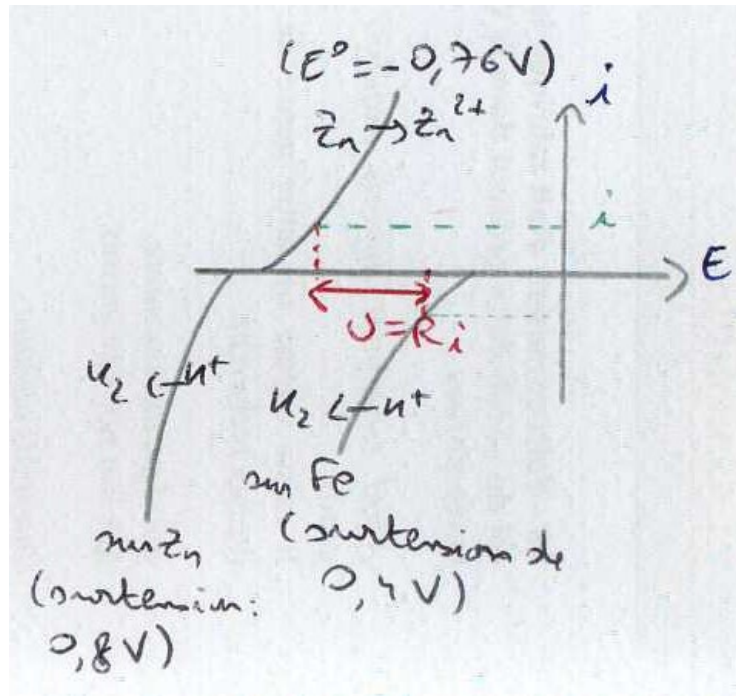 (E⁰=-0,76V)
i
Zn → Zn²⁺
i
E
U=Ri
H₂ ← H⁺
H₂ ← H⁺
sur Fe
(surtension de
0,4V)
sur Zn
(surtension:
0,8V)